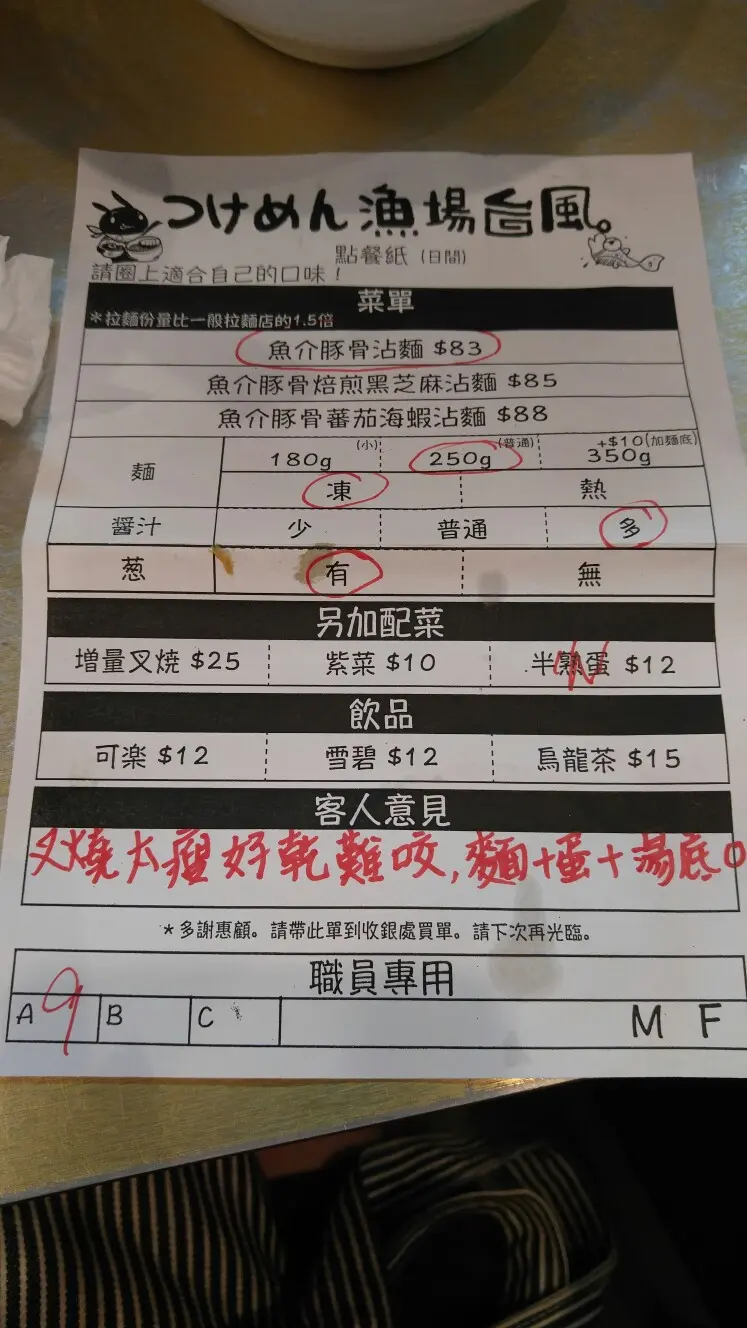 つけめん漁場台風。
點餐紙 (日間)
請圈上適合自己的口味！
菜單
*拉麵份量比一般拉麵店的1.5倍
魚介豚骨沾麵 $83
魚介豚骨焙煎黑芝麻沾麵 $85
魚介豚骨蕃茄海蝦沾麵 $88
麵 180g (小) 250g (普通) 350g +$10(加麵底)
凍 熱
醬汁 少 普通 多
葱 有 無
另加配菜
增量叉焼 $25 紫菜 $10 半熟蛋 $12
飲品
可楽 $12 雪碧 $12 烏龍茶 $15
客人意見
叉燒太瘦好乾難咬,麵+蛋+湯底O
*多謝惠顧。請帶此單到收銀處買單。請下次再光臨。
職員專用
A 9 B C M F